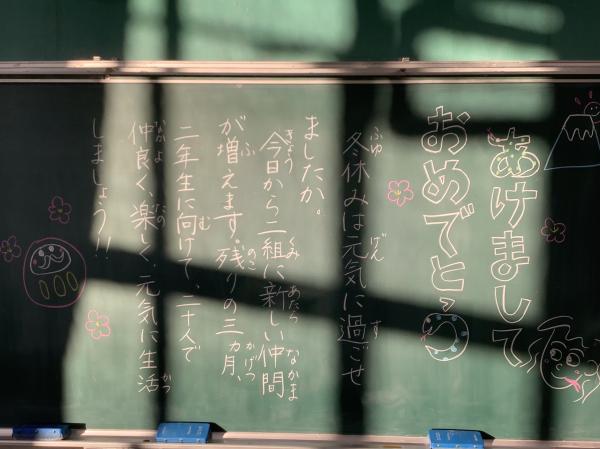 あけまして
おめでとう
ふゆ げん す
冬休みは元気に過ごせ
ましたか。
きょう くみ あたら なかま
今日から二組に新しい仲間
ふ のこ かげつ
が増えます。残りの三カ月、
む
二年生に向けて、二十人で
なかよ たの かつ
仲良く、楽しく、元気に生活
しましょう!!